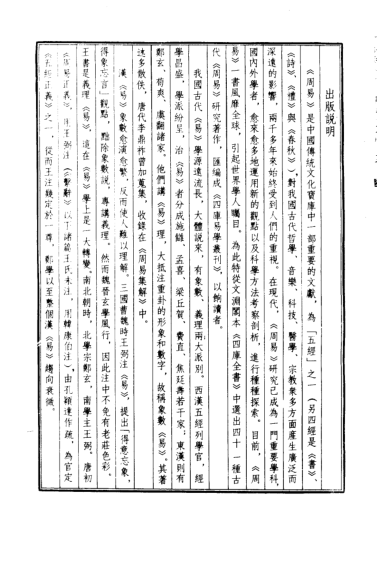 出版説明
《周易》是中國傳統文化寶庫中一部重要的文獻，為「五經」之一（另四經是《書》、
《詩》、《禮》與《春秋》），對我國古代哲學、音樂、科技、醫學、宗教衆多方面產生廣泛而
深遠的影響，兩千多年來始終受到人們的重視。在現代，《周易》研究已成為一門重要學科，
國內外學者，愈來愈多地運用新的觀點以及科學方法考察剖析，進行種種探索。目前，《周
易》一書風靡全球，引起世界學人矚目。為此特從文淵閣本《四庫全書》中選出四十一種古
代《易》研究著作，匯編成《四庫易學叢刊》，以餉讀者。
我國古代《易》學源遠流長，大體說來，有象數、義理兩大派別。西漢五經列學官，經
學昌盛，學派紛呈，治《易》者分成施讎、孟喜、梁丘賀、費直、焦延壽若干家；東漢則有
鄭玄、荀爽、虞翻諸家。他們講《易》理，大抵注重卦的形象和數字，故稱象數《易》。其著
述多散佚，唐代李鼎祚曾加蒐集，收錄在《周易集解》中。
漢《易》象數愈演愈繁，反而使人難以理解。三國曹魏時王弼注《易》，提出「得意忘象，
得象忘言」觀點，黜除象數説，專講義理。然而魏晉玄學風行，因此注中不免有老莊色彩。
王書是義理《易》，遠在《易》學上是一大轉變。南北朝時，北學宗鄭玄，南學主王弼。唐初
《周易正義》，用王弼注（《繫辭》以下諸篇王氏未注，用韓康伯注），由孔穎達作疏，為官定
《五經正義》之一，從而王注龍定於一尊，鄭學以至整個漢《易》趨向衰微。